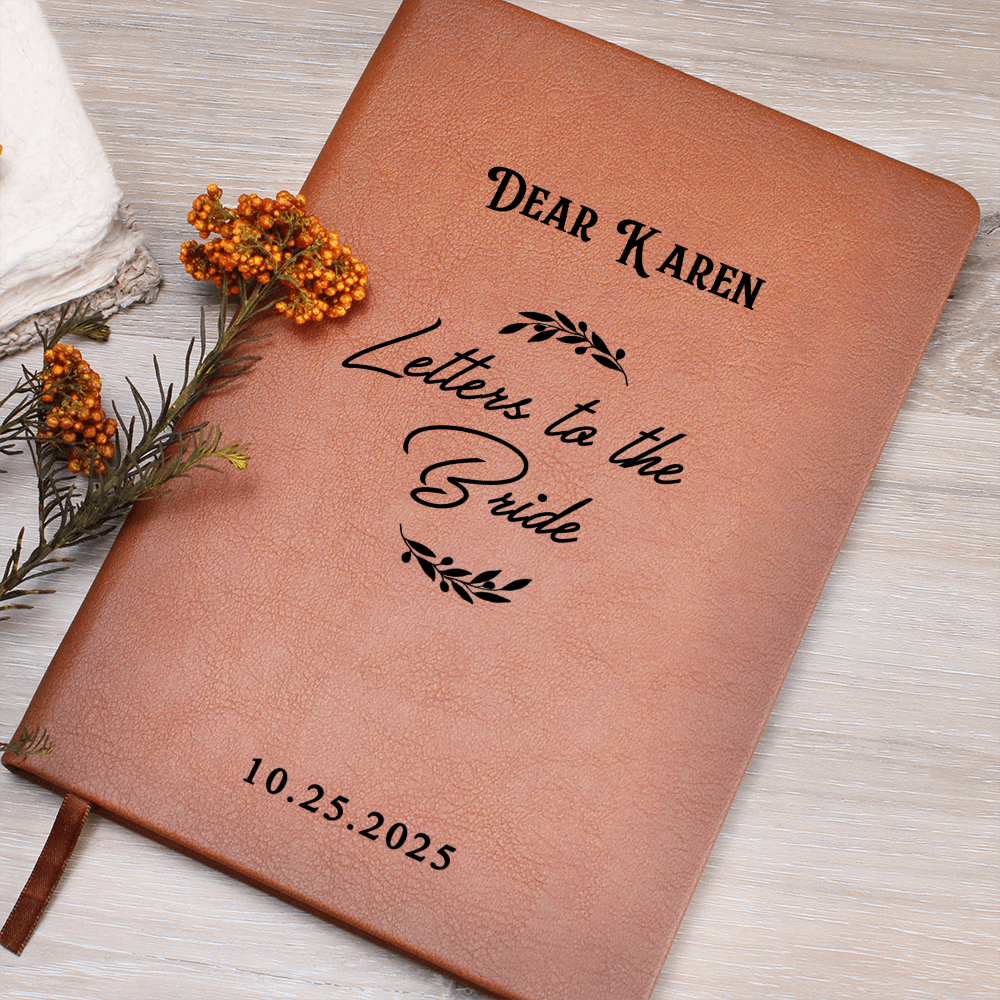 Dear Karen
Letters to the
Bride
10.25.2025